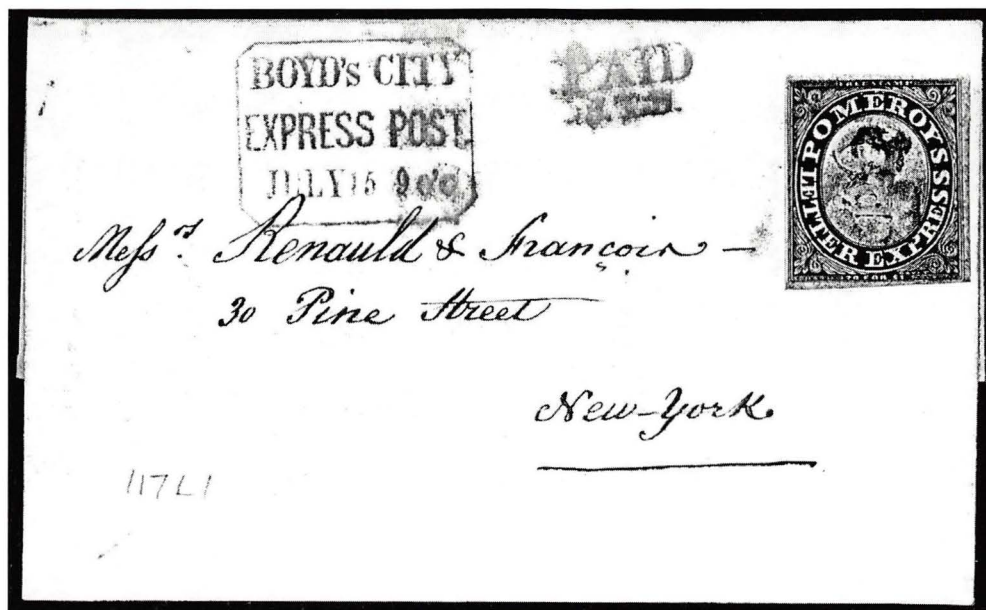 BOYD's CITY
EXPRESS POST.
JULY 15 9 o'c
PAID
POMEROYS LETTER EXPRESS
Messrs. Renauld & François —
30 Pine Street
New-York.
117L1